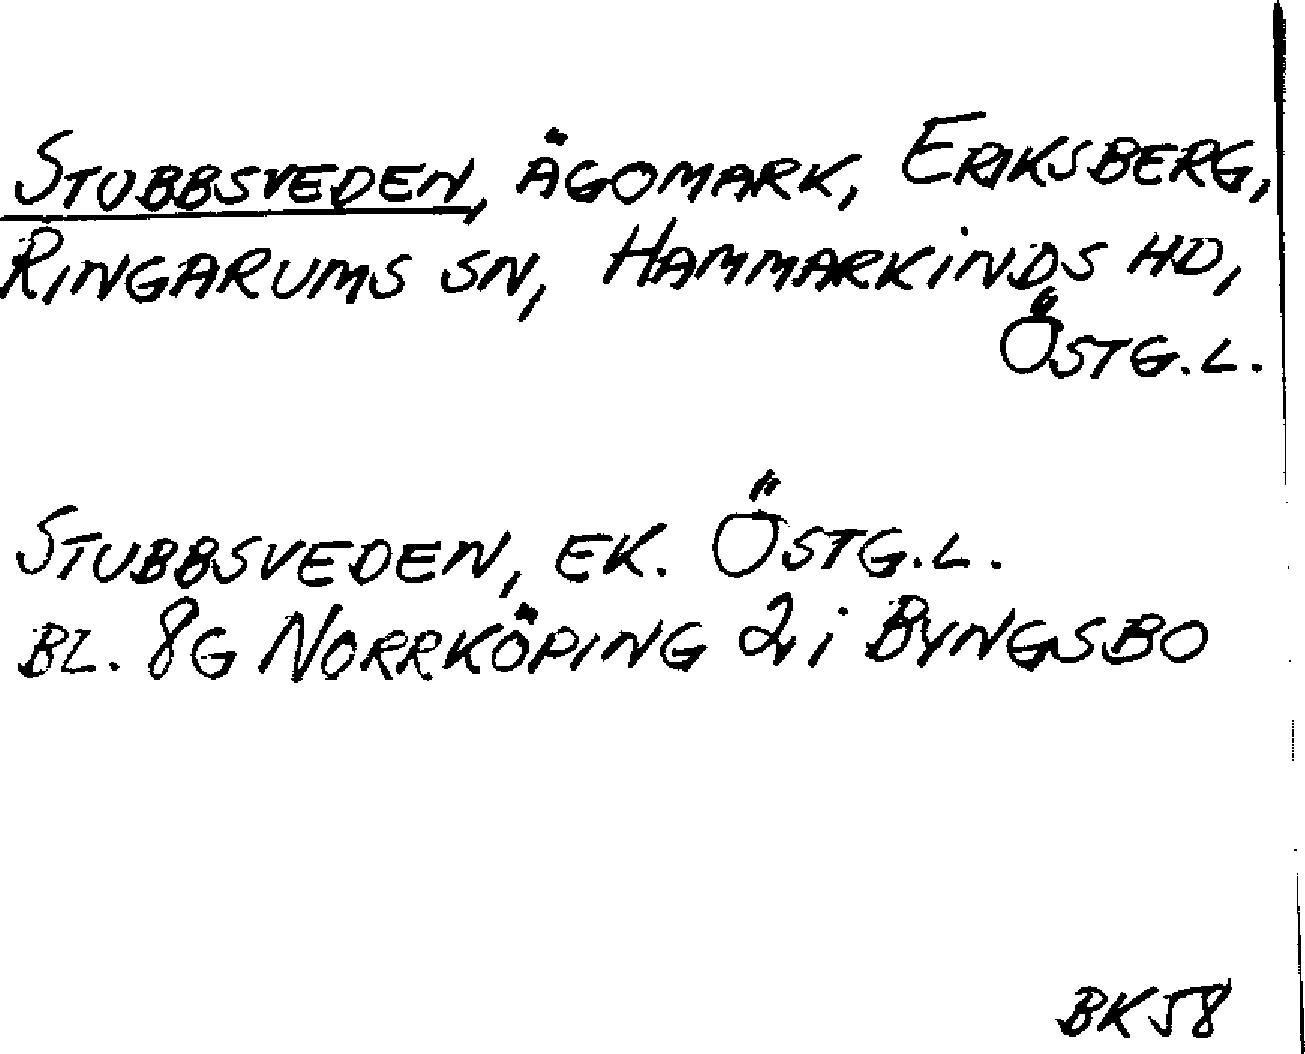 STUBBSVEDEN, ÄGOMARK, ERIKSBERG,
RINGARUMS SN, HAMMARKINDS HD,
ÖSTG.L.
STUBBSVEDEN, EK. ÖSTG.L.
BL. 8G NORRKÖPING 2i BYNGSBO
BK58